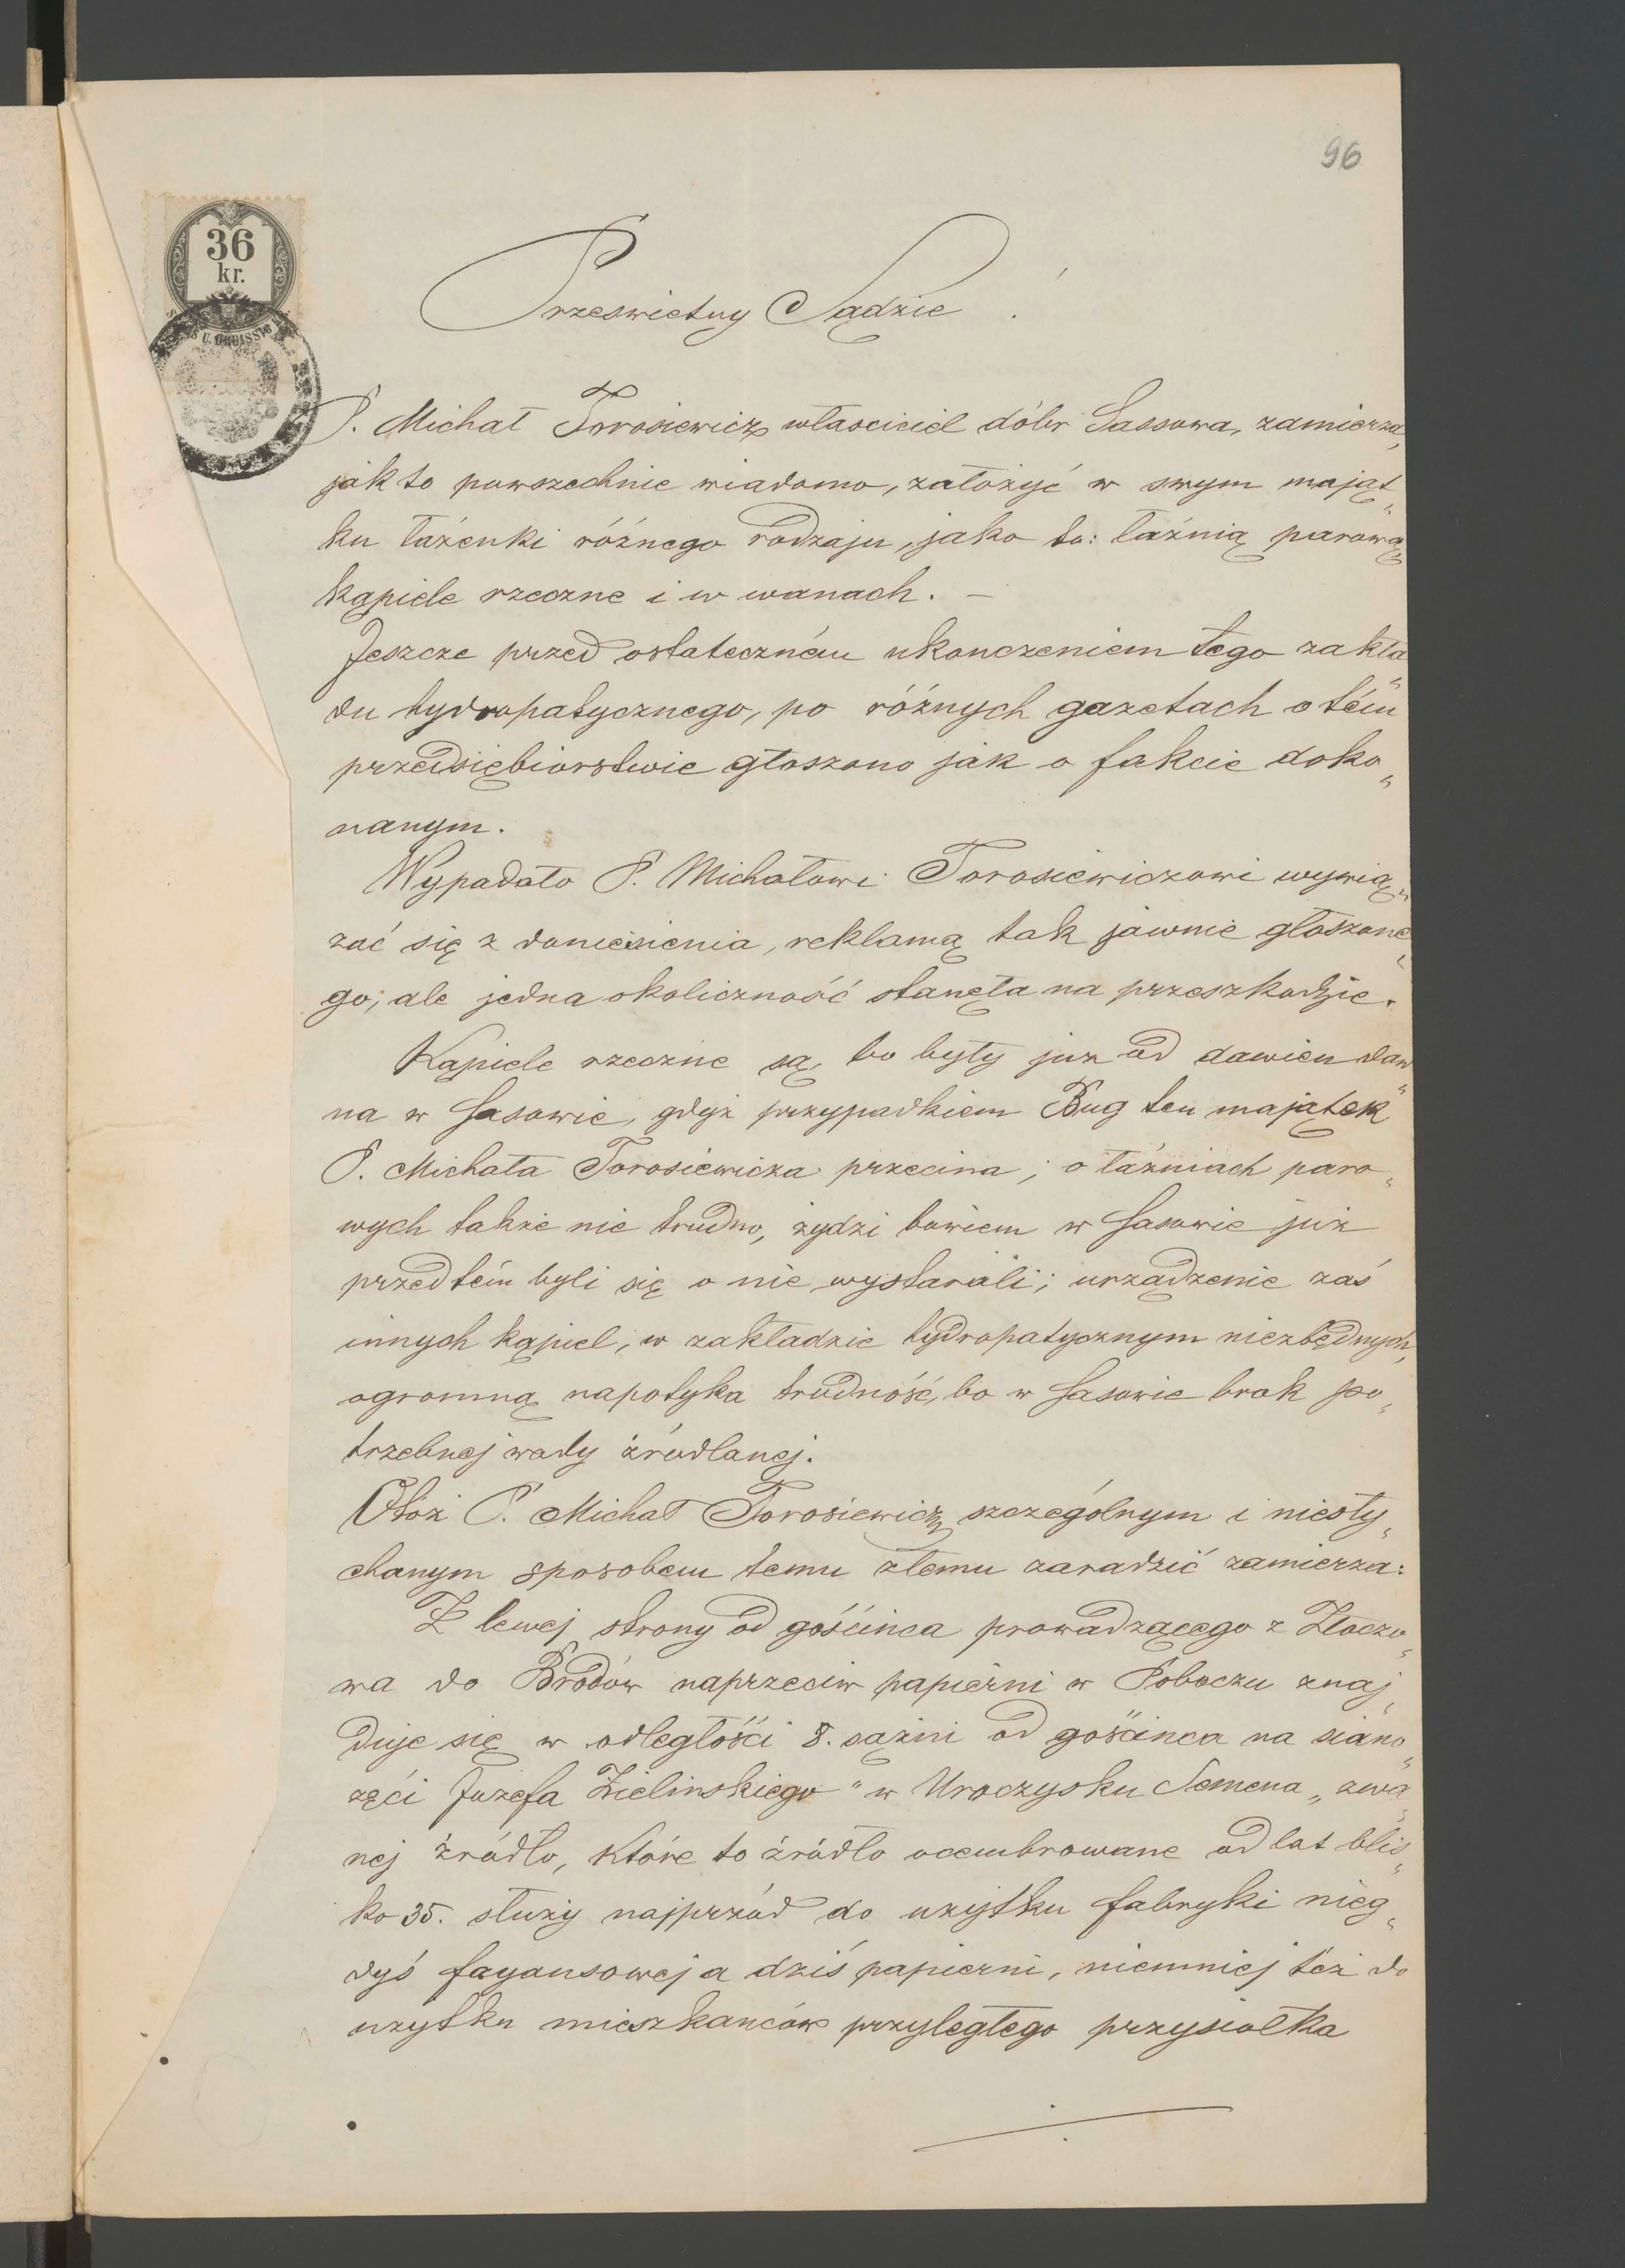 96
36
kr.
Przeswietny Sądzie!
P. Michał Torosiewicz własciciel dóbr Sassowa, zamierza,
jak to powszechnie wiadomo, założyć w swym mająt„
ku łaźenki różnego rodzaju, jako to: łaźnią parową,
kąpiele rzeczne i w wanach. —
Jeszcze przed ostateczném ukonczeniem tego zakła„
du hydropatycznego, po różnych gazetach o tém
przedsiębiorstwie głoszono jak o fakcie doko„
nanym.
Wypadało P. Michałowi Torosiewiczowi wywią„
zać się z doniesienia, reklamą tak jawnie głoszone„
go; ale jedna okoliczność stanęła na przeszkodzie.
Kąpiele rzeczne są, bo były juz od dawien daw„
na w Sasowie, gdyż przypadkiem Bug ten majątek
P. Michała Torosiewicza przecina; o łaźniach paro„
wych także nie trudno, żydzi bowiem w Sasowie już
przedtém byli się o nie wystarali; urządzenie zaś
innych kąpiel, w zakładzie hydropatycznym niezbędnych,
ogromną napotyka trudność, bo w Sasowie brak po„
trzebnej wody źródlanej.
Otóż P. Michał Torosiewicz szczególnym i niesły„
chanym sposobem temu złemu zaradzić zamierza:
Z lewej strony od gościnca prowadzącego z Złoczo„
wa do Brodów naprzeciw papierni w Poboczu znaj„
duje się w odległości 8. sążni od gościnca na siano„
żęci Józefa Zielinskiego "w Uroczysku Semena„ zwa„
nej źródło, które to źródło ocembrowane od lat blis„
ko 35. służy najprzód do użytku fabryki nieg„
dyś fayansowej a dziś papierni, niemniej też do
uzytku mieszkanców przyległego przysiołka